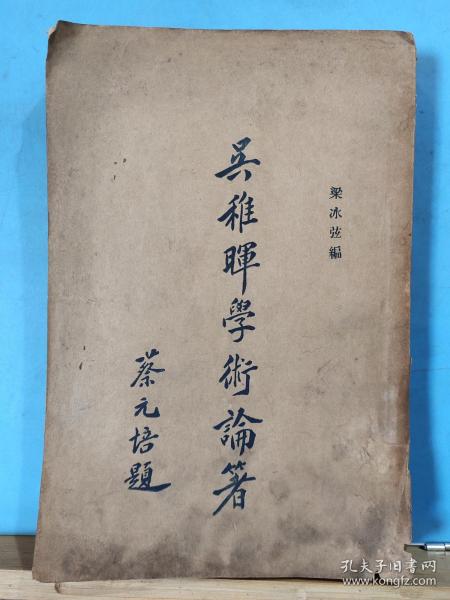 梁冰弦編
吳稚暉學術論著
蔡元培題
孔夫子旧书网
www.kongfz.com